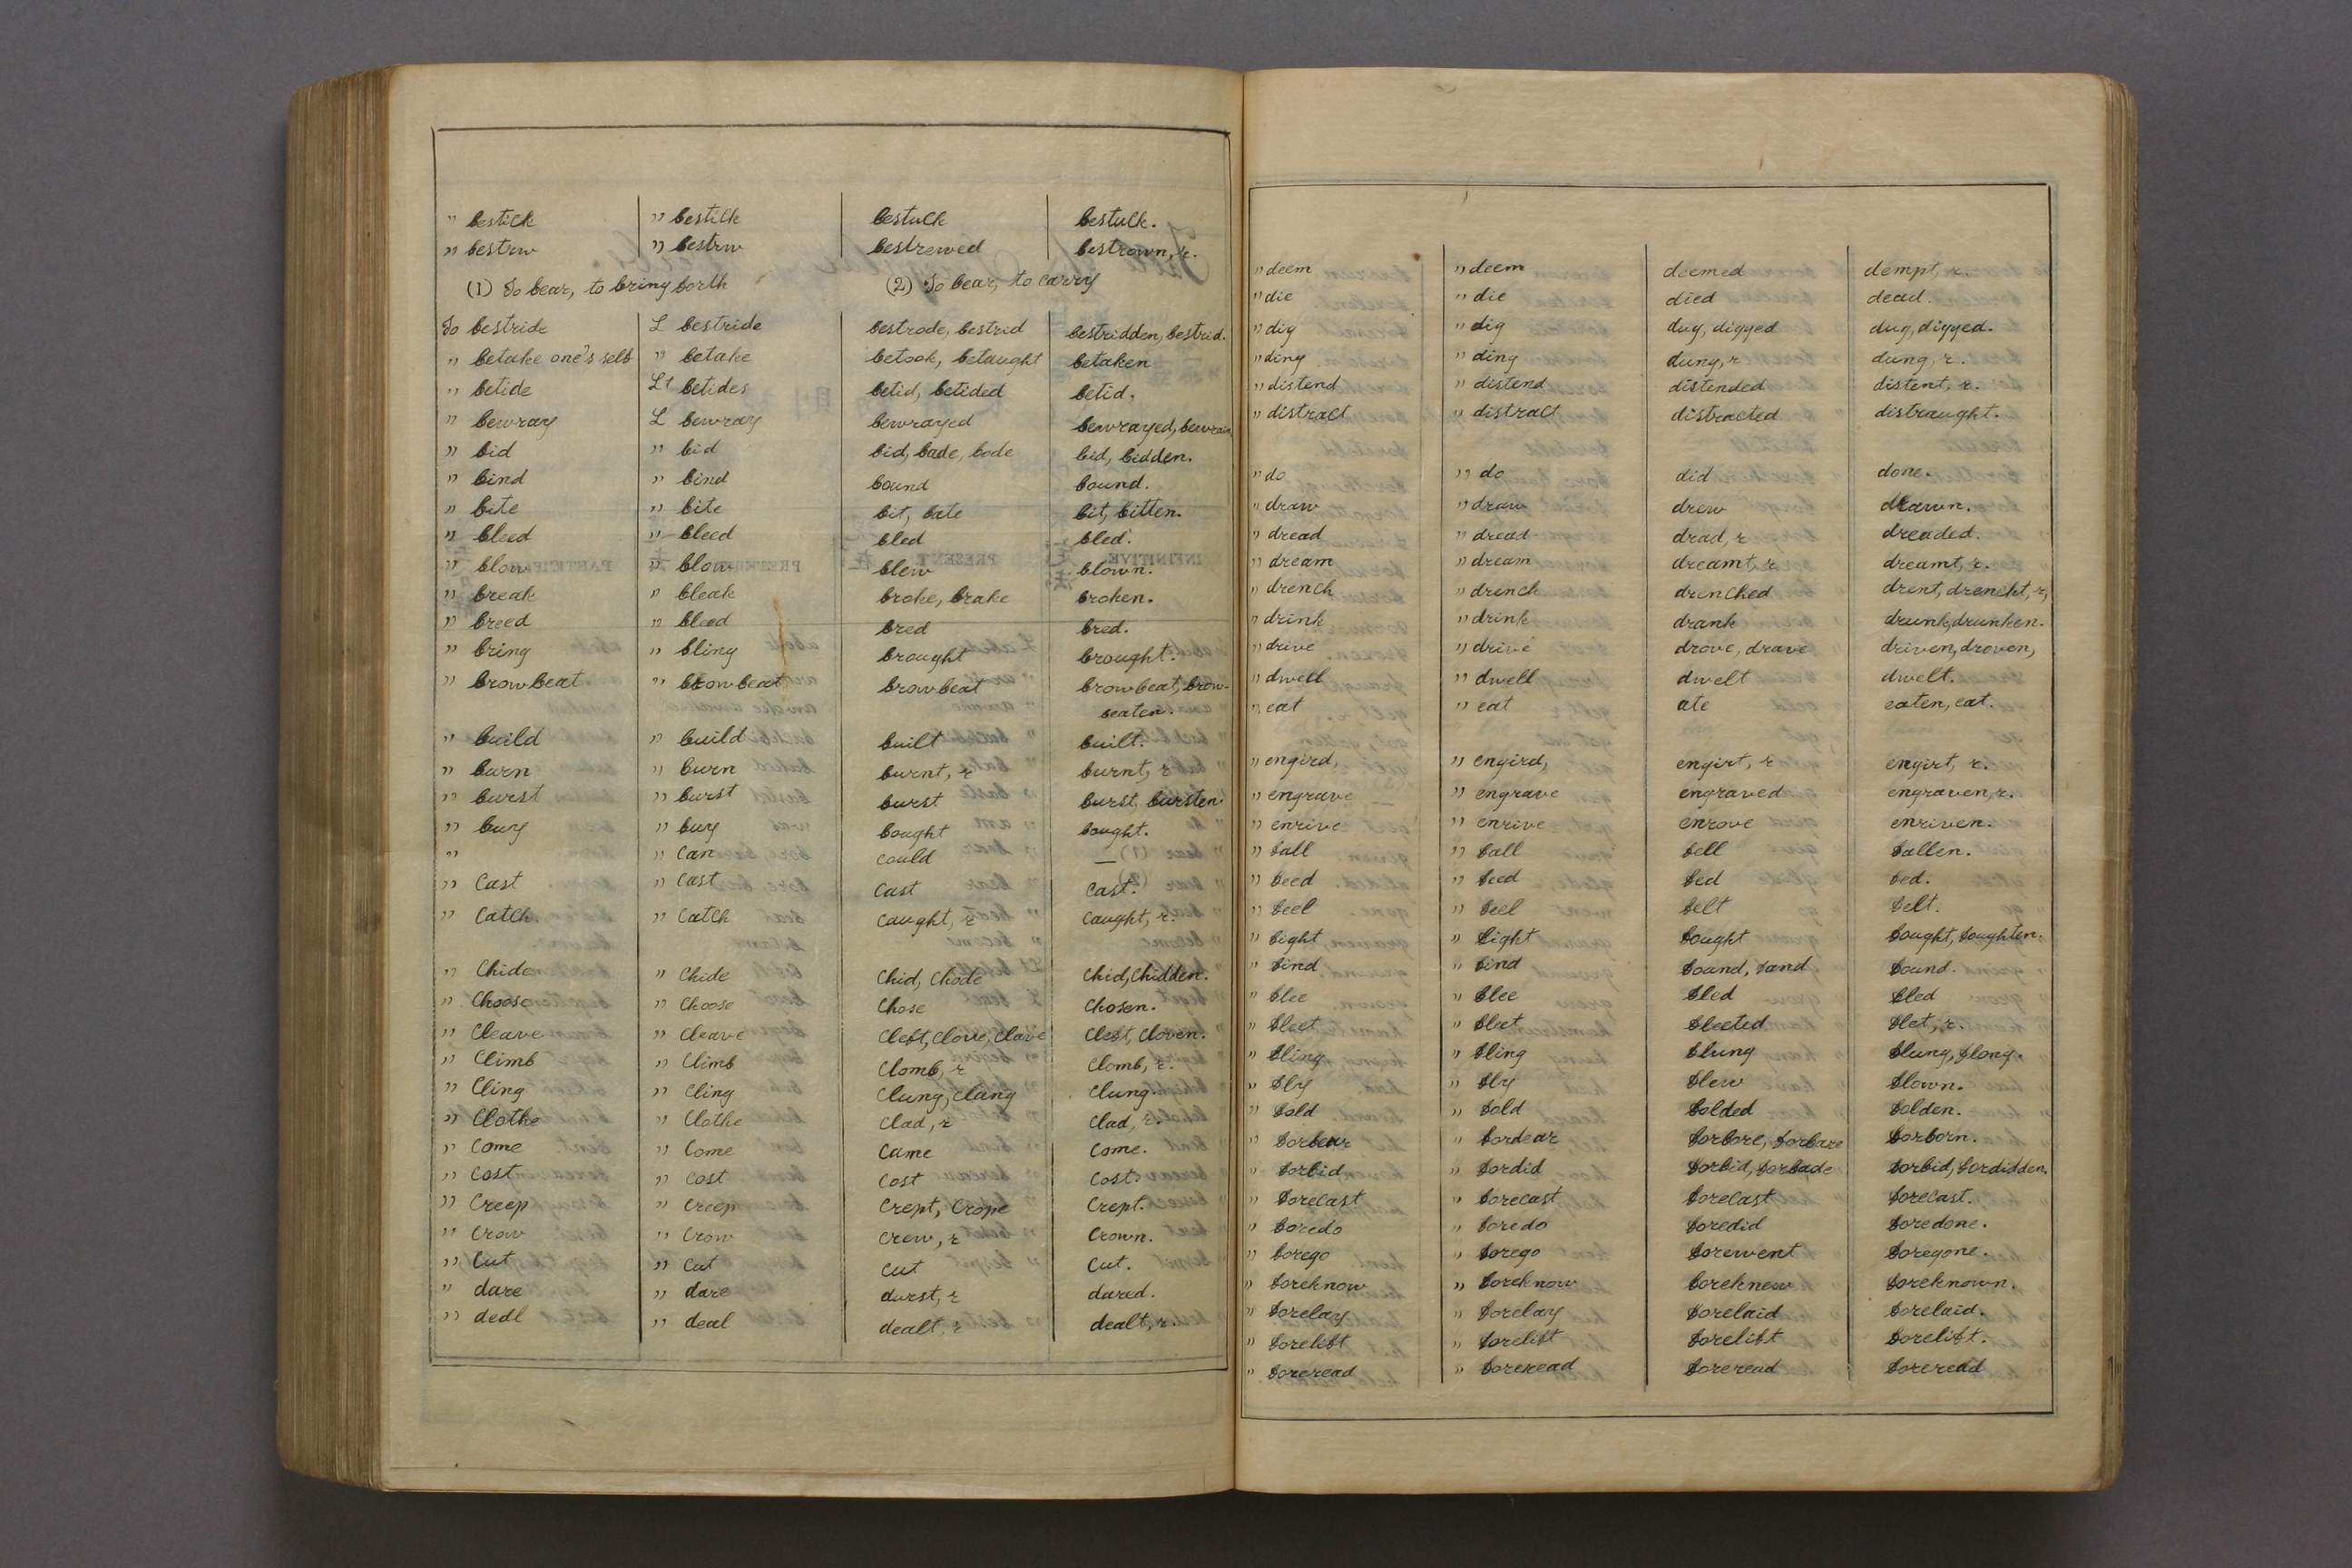 " bestick " bestick bestuck bestuck.
" bestrw " bestrw bestrewed bestrown, r.
(1) To bear, to bring forth (2) To bear, to carry
To bestride I bestride bestrode, bestrid bestridden, bestrid.
" betake one's self " betake betook, betaught betaken
" betide It betides betid, betided betid.
" bewray I bewray bewrayed bewrayed, bewrain
" bid " bid bid, bade, bode bid, bidden.
" bind " bind bound bound.
" bite " bite bit, bate bit, bitten.
" bleed " bleed bled bled.
" blow " blow blew blown.
" break " bleak broke, brake broken.
" breed " bleed bred bred.
" bring " bling brought brought.
" browbeat " browbeat browbeat browbeat, brow-
beaten.
" build " build built built.
" burn " burn burnt, r burnt, r
" burst " burst burst burst, bursten
" buy " buy bought bought.
" " can could —
" cast " cast cast cast.
" catch " catch caught, r caught, r.
" chide " chide chid, chode chid, chidden.
" choose " choose chose chosen.
" cleave " cleave cleft, clove, clave cleft, cloven.
" climb " climb clomb, r clomb, r.
" cling " cling clung, clang clung.
" clothe " clothe clad, r clad, r.
" come " come came come.
" cost " cost cost cost.
" creep " creep crept, crope crept.
" crow " crow crew, r crown.
" cut " cut cut cut.
" dare " dare durst, r dared.
" dedl " deal dealt, r dealt, r.
" deem " deem deemed dempt, r.
" die " die died dead.
" dig " dig dug, digged dug, digged.
" ding " ding dung, r dung, r.
" distend " distend distended distent, r.
" distract " distract distracted distraught.
" do " do did done.
" draw " draw drew drawn.
" dread " dread drad, r dreaded.
" dream " dream dreamt, r dreamt, r.
" drench " drench drenched drent, drencht, r,
" drink " drink drank drunk, drunken.
" drive " drive drove, drave driven, droven,
" dwell " dwell dwelt dwelt.
" eat " eat ate eaten, eat.
" engird, " engird, engirt, r engirt, r.
" engrave " engrave engraved engraven, r.
" enrive " enrive enrove enriven.
" fall " fall fell fallen.
" feed " feed fed fed.
" feel " feel felt felt.
" fight " fight fought fought, foughten.
" find " find found, fand found.
" flee " flee fled fled
" fleet " fleet fleeted flet, r.
" fling " fling flung flung, flong.
" fly " fly flew flown.
" fold " fold folded folden.
" forbear " fordear forbore, forbare forborn.
" forbid " fordid forbid, forbade forbid, fordidden.
" forecast " forecast forecast forecast.
" foredo " foredo foredid foredone.
" forego " forego forewent foregone.
" foreknow " foreknow foreknew foreknown.
" forelay " forelay forelaid forelaid.
" forelift " forelift forelift forelift.
" foreread " foreread foreread foreread